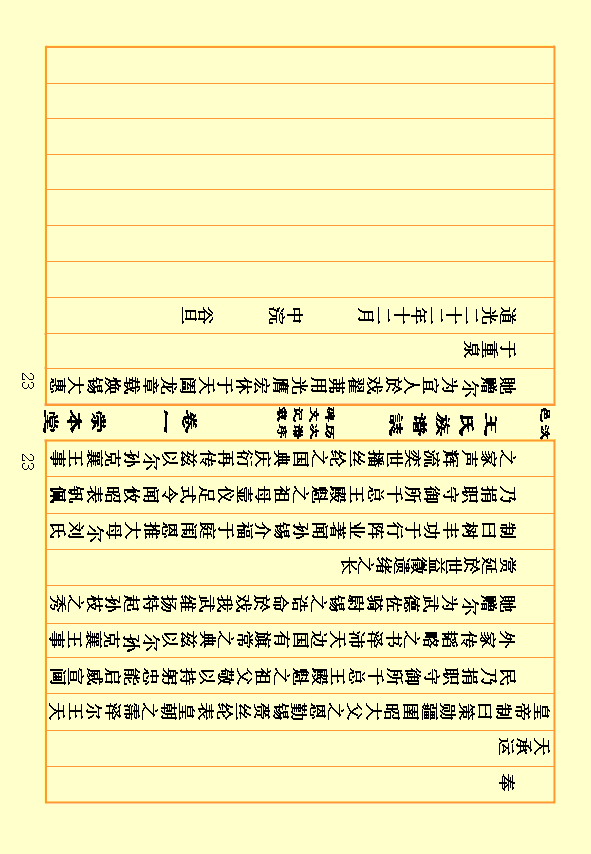 奉
天承运
皇帝制曰策勋疆圉昭大父之恩勤锡赉丝纶表皇朝之霈泽尔王天
民乃捐职守御所千总王殿魁之祖父敬以持躬忠能启威宣阃
外家传韬略之书泽沛天边国有旗常之典兹以尔孙克襄王事
貤赠尔为武德佐骑尉锡之诰命於戏我武维扬特起孙枝之秀
赏延於世益徵遗绪之长
制曰树丰功于行阵业著闻孙锡介福于庭闱恩推大母尔刘氏
乃捐职守御所千总王殿魁之祖母壸仪足式令闻攸昭表佩
之家声辉流奕世播丝纶之国典庆衍再传兹以尔孙克襄王事
23
汶邑
王氏族谱誌
历次谱序
碑文记载
卷一
崇本堂
23
貤赠尔为宜人於戏翟茀用光膺宏休于天阃龙章载焕锡大惠
于重泉
道光二十二年十二月 中浣 谷旦